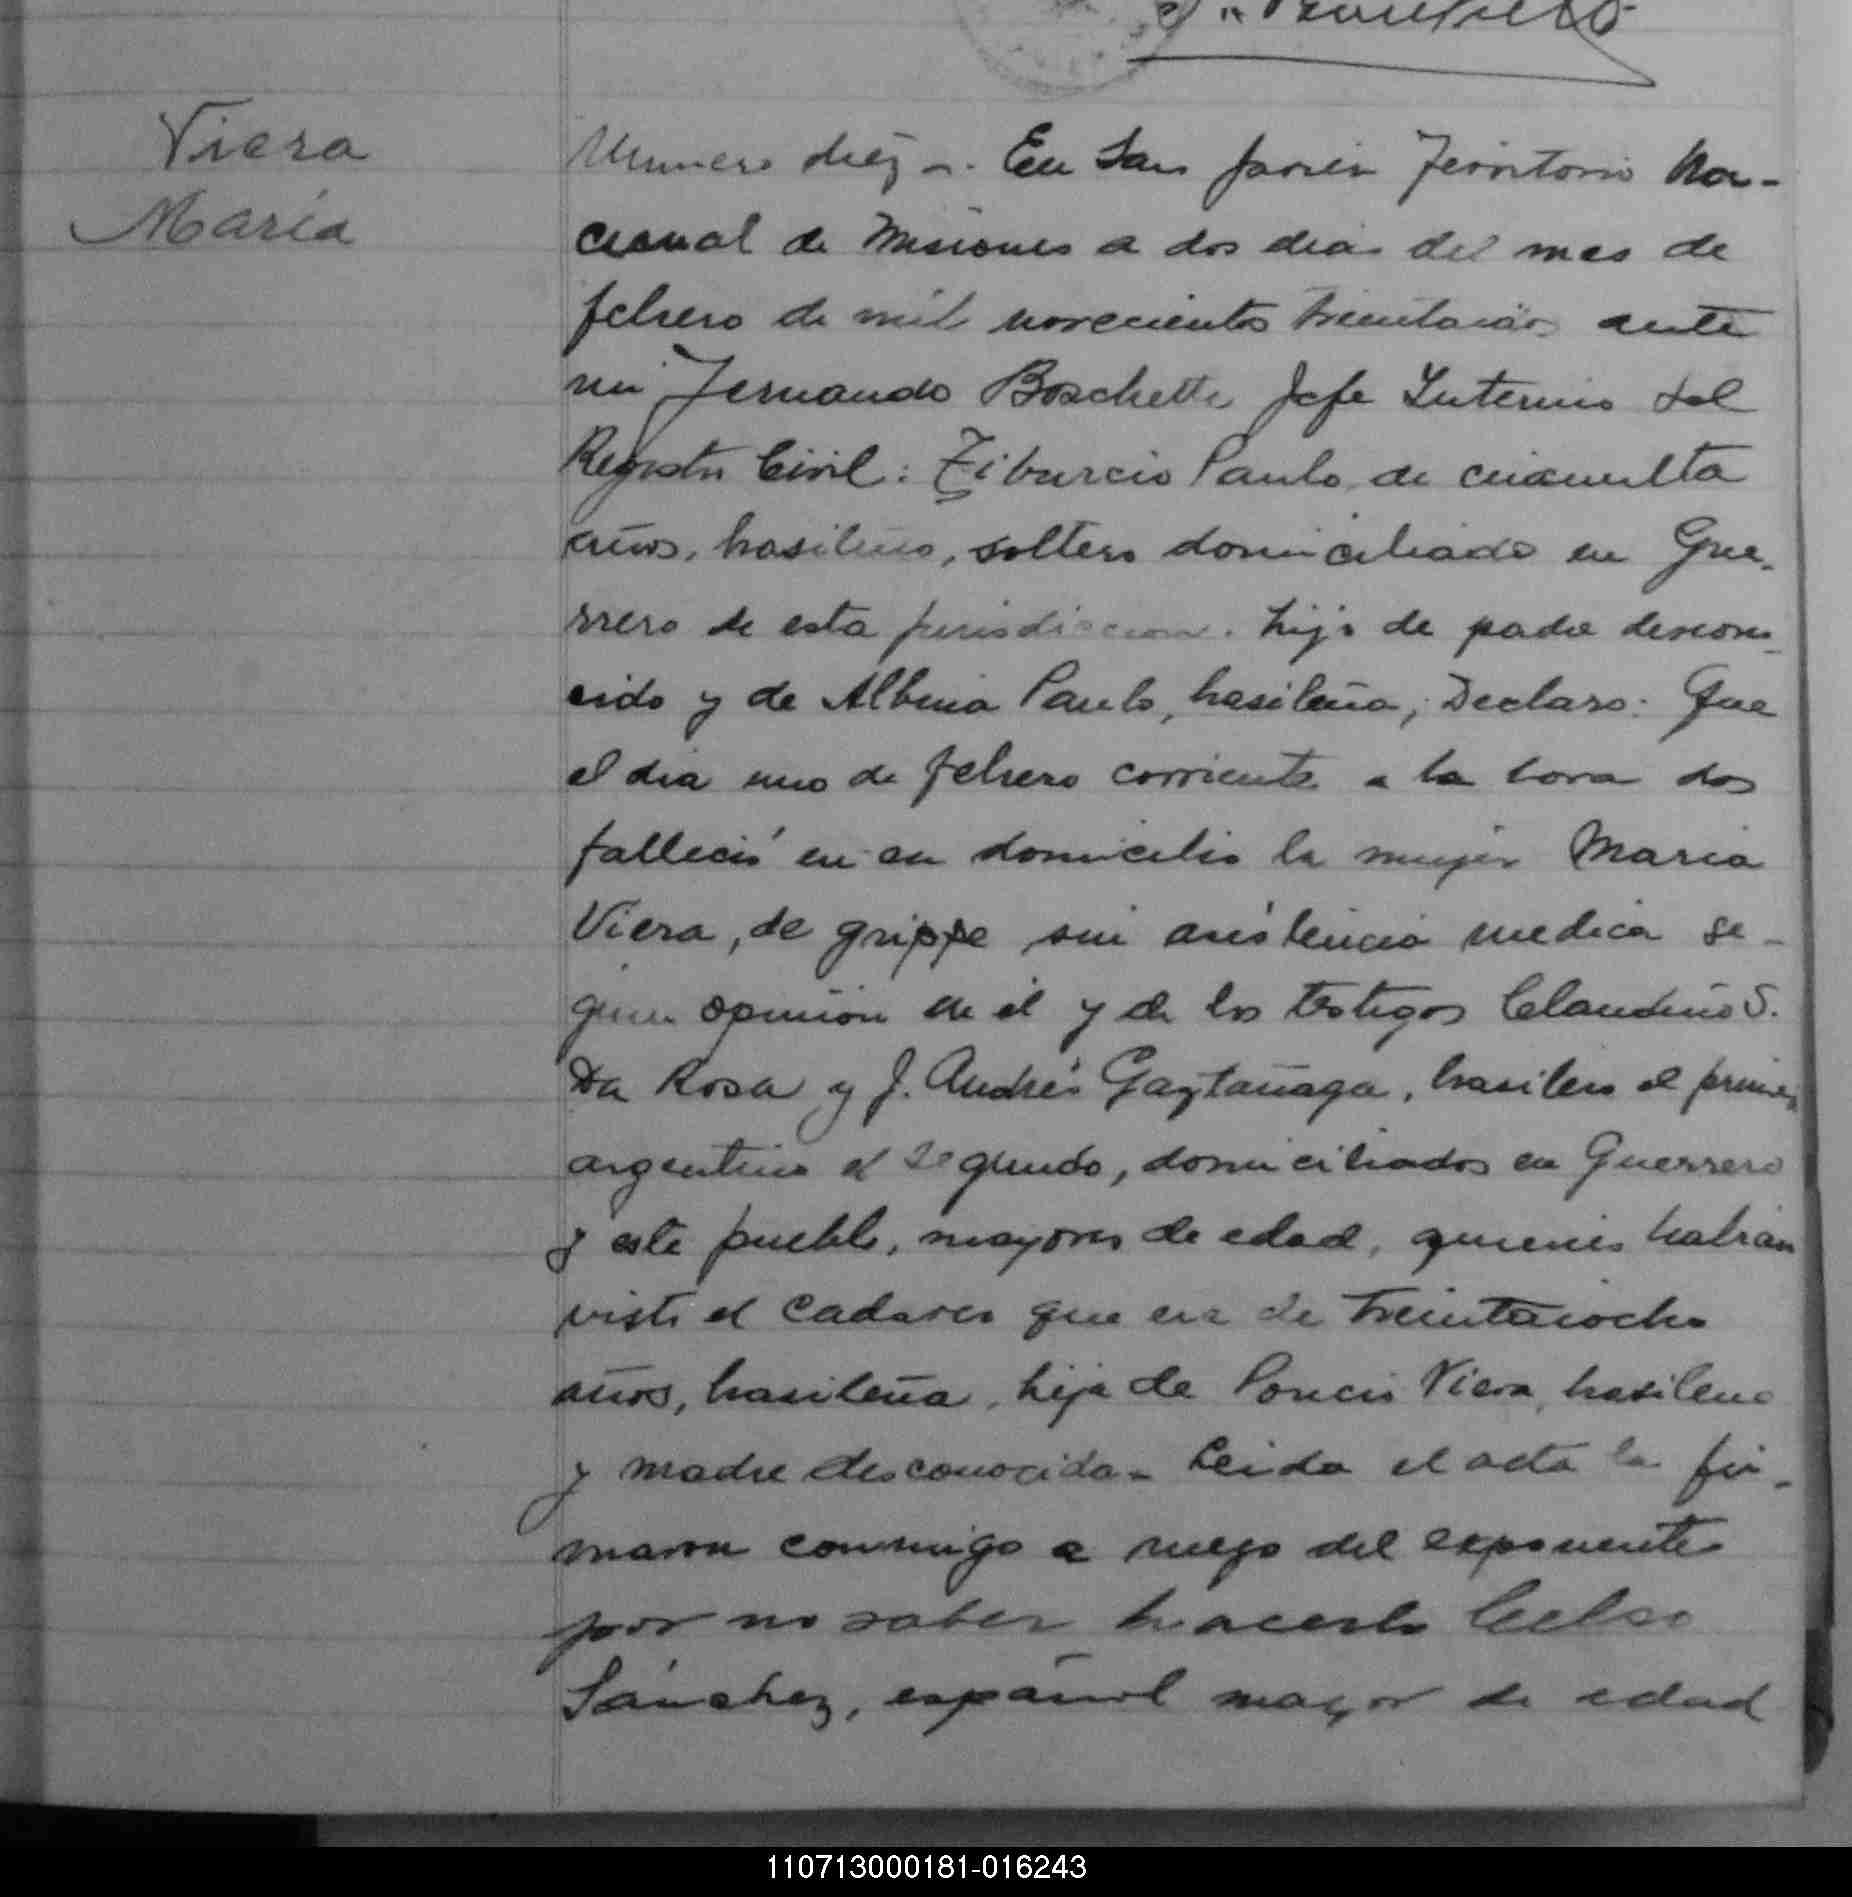 Viera
María
Numero diez -. En San Javier Territorio Na-
cional de Misiones a dos dias del mes de
febrero de mil novecientos treintaidos ante
mi Fernando Boschetti Jefe Interino del
Registro Civil: Tiburcio Paulo de cuarenta
años, brasileño, soltero domiciliado en Gue-
rrero de esta jurisdiccion. hijo de padre descono-
cido y de Albina Paulo, brasileña; Declaro: Que
el dia uno de febrero corriente a la hora dos
falleció en su domicilio la mujer Maria
Viera, de grippe sin asistencia medica se-
gun opinión de él y de los testigos Claudino S.
Da Rosa y J. Andrés Gaztañaga, brasilero el primero
argentino el segundo, domiciliados en Guerrero
y este pueblo, mayores de edad, quienes habian
visto el cadaver que era de treintaiocho
años, brasileña, hija de Poncio Viera, brasileno
y madre desconocida- Leida el acta la fir-
maron conmigo a ruego del exponente
por no saber hacerlo Celso
Sánchez, español mayor de edad
110713000181-016243